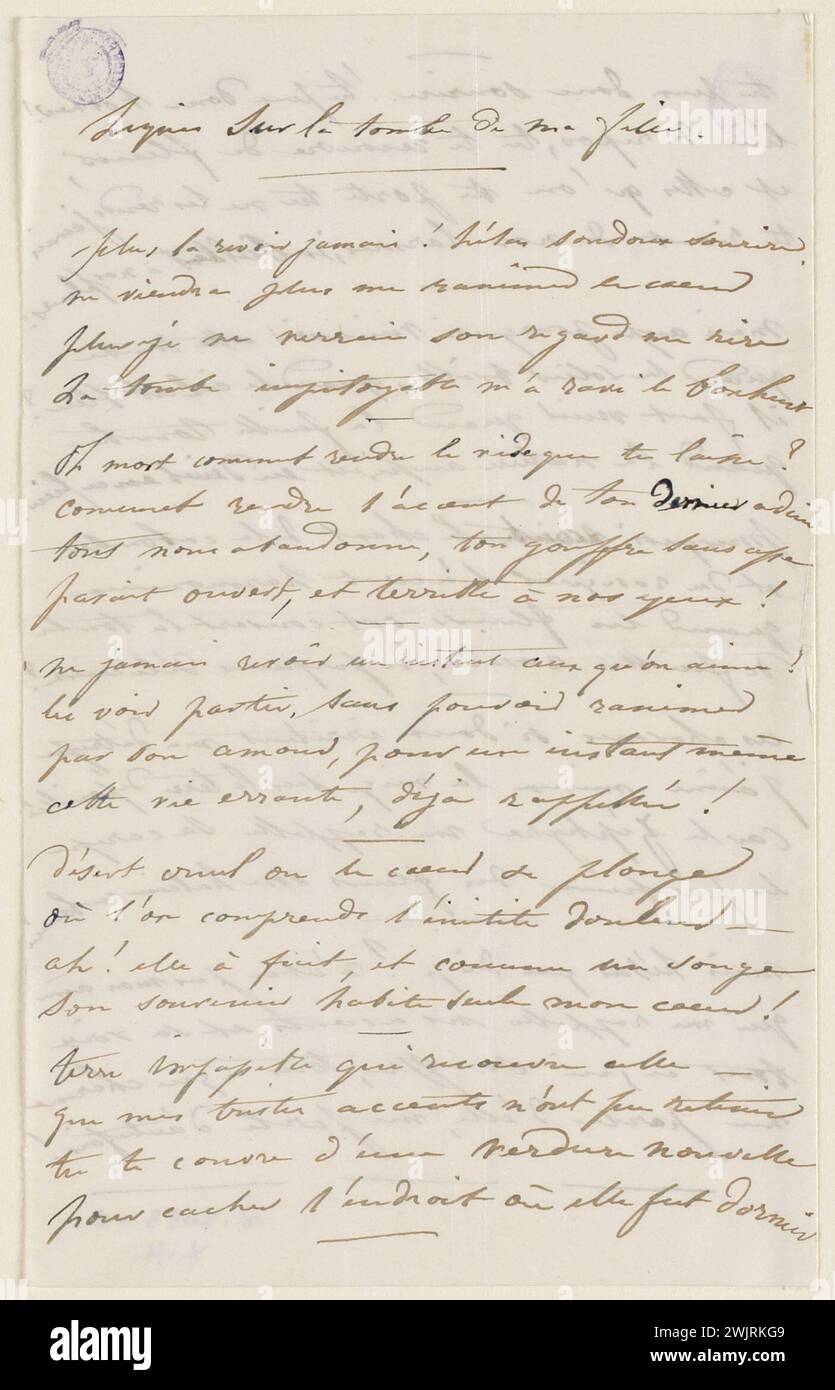 sur la tombe de ma fille.
plus la revoir jamais ! hélas son doux sourire
ne viendra plus me ranimer le cœur
plus je ne verrai son regard me rire
La tombe impitoyable m'a ravi le bonheur
Oh mort comment rendre le vide que tu laisse ?
comment rendre l'accent de ton dernier adieu
tout nous abandonne, ton gouffre sans cesse
parait ouvert, et terrible à nos yeux !
ne jamais revoir un instant ceux qu'on aime !
les voir partir, sans pouvoir ranimer
par son amour, pour un instant même
cette vie errante, déjà rappellée !
Désert cruel ou le cœur se plonge
où l'on comprends l'inutile douleur
ah ! elle à fuit, et comme un songe
son souvenir habite seule mon cœur !
terre qui recouvre celle
que mes tristes accents n'ont pu retenir
tu te couvre d'une verdure nouvelle
pour cacher l'endroit où elle fut dormir
alamy
Image ID: 2WJRKG9
www.alamy.com